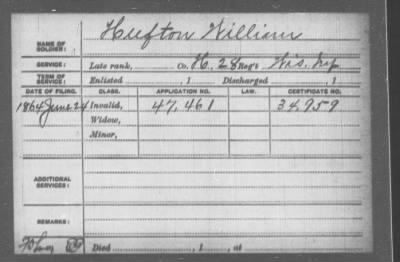 NAME OF SOLDIER: Hufton William
SERVICE: Late rank, Co. H, 28 Reg't Wis. Inf
TERM OF SERVICE: Enlisted , 1 Discharged , 1
DATE OF FILING. CLASS. APPLICATION NO. LAW. CERTIFICATE NO.
1864 June 24 Invalid, 47,461 34,959
Widow,
Minor,
ADDITIONAL SERVICES:
REMARKS:
Died , 1 , at